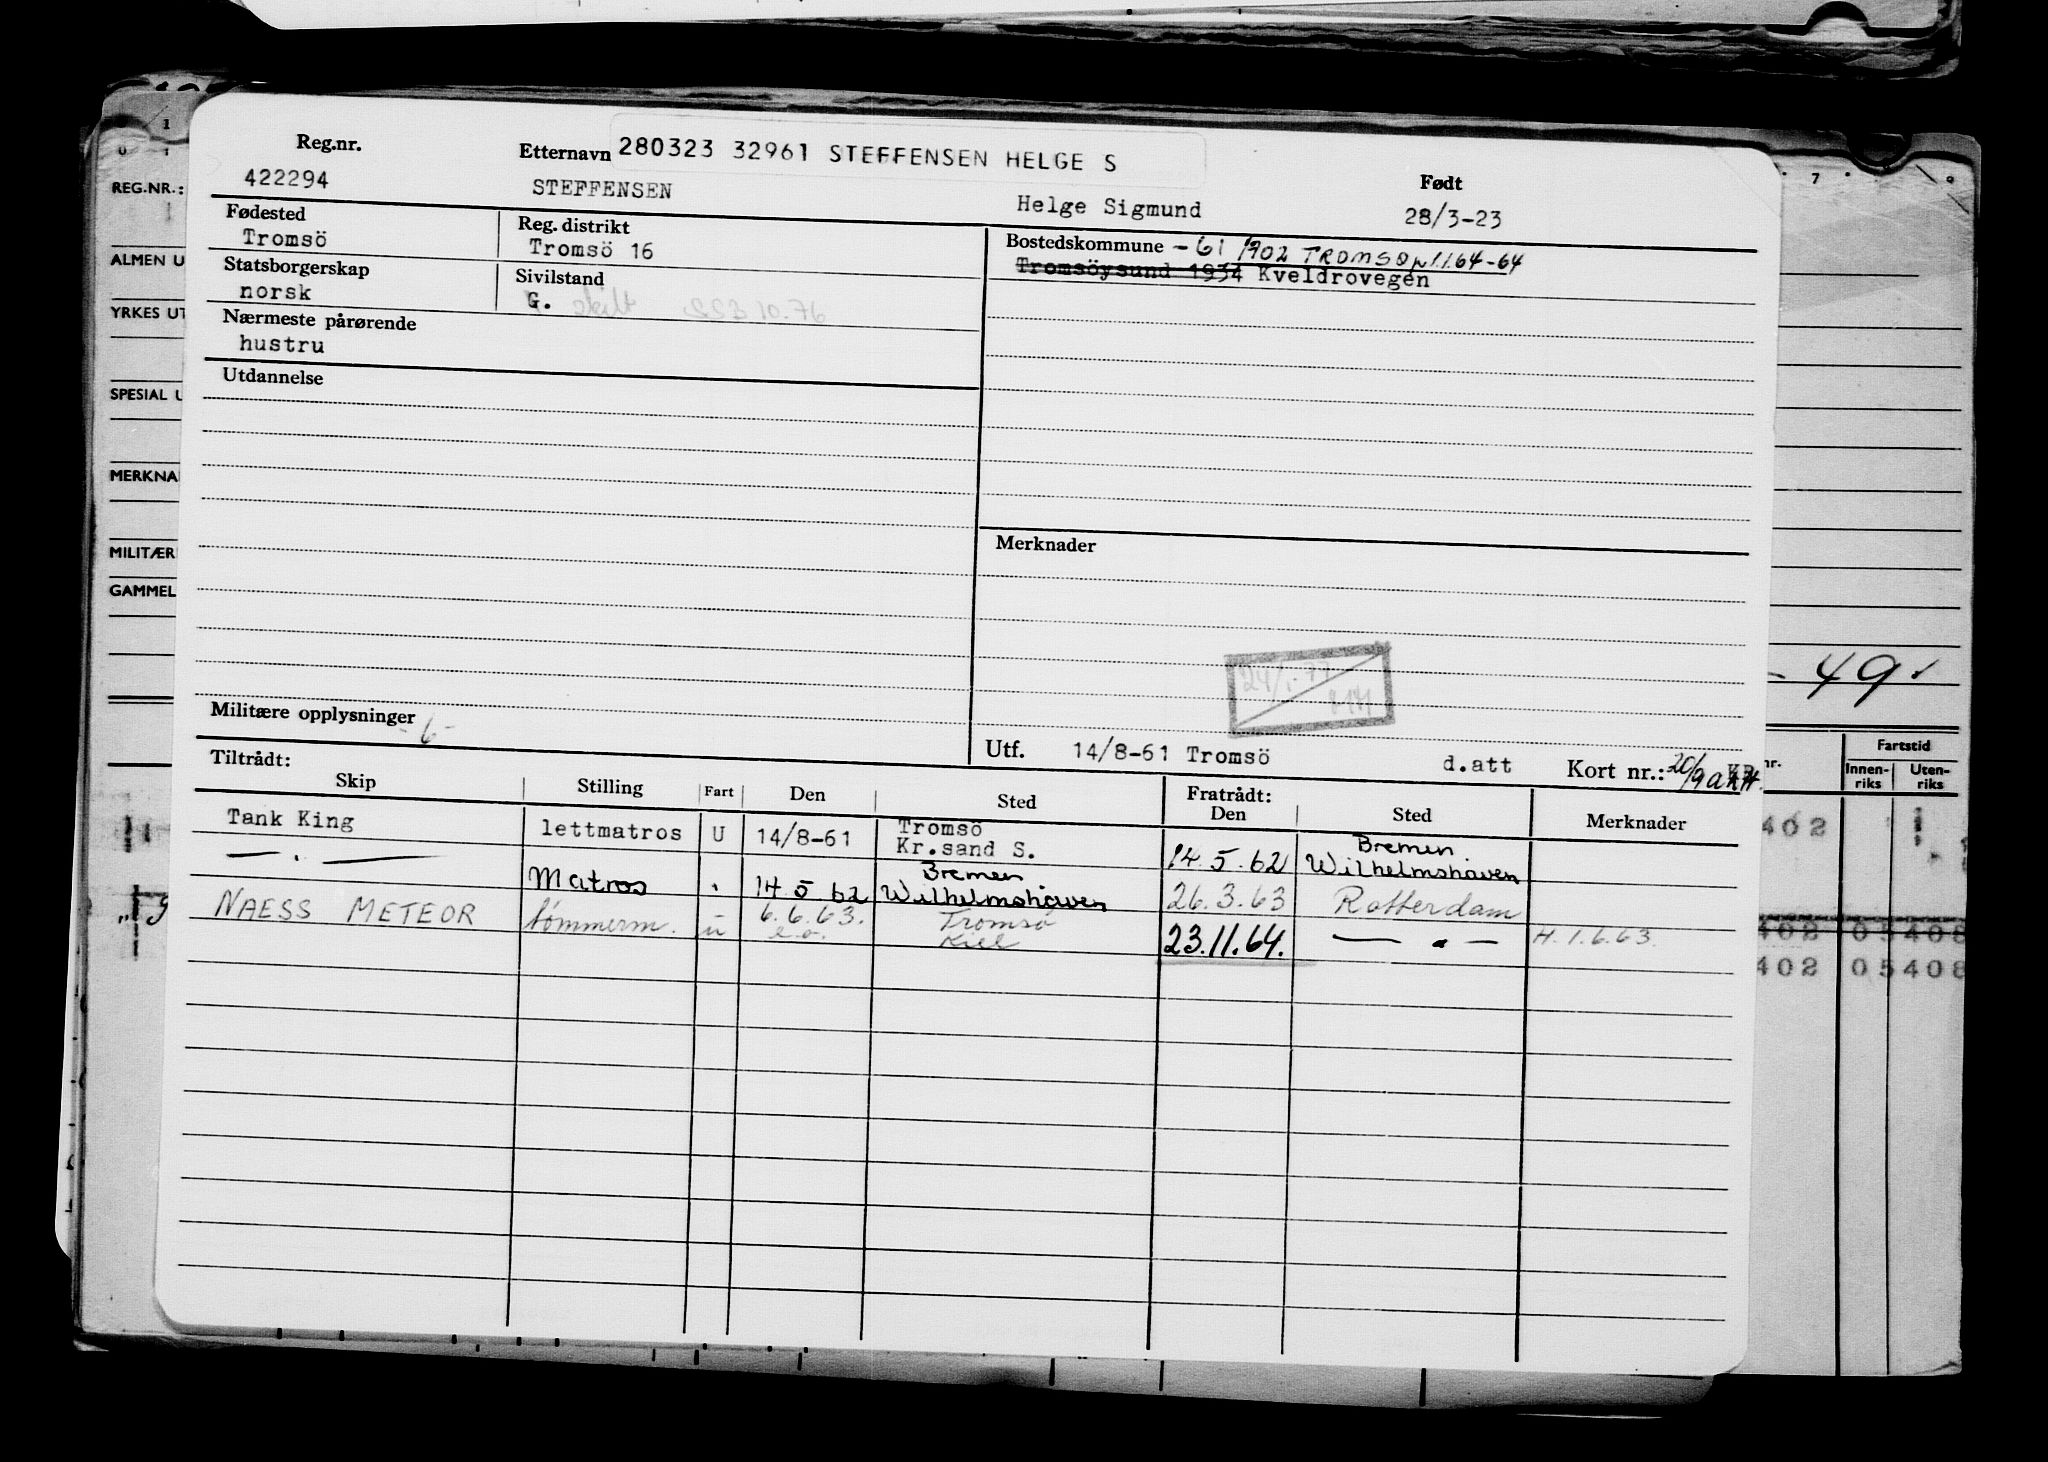 280323 32961 STEFFENSEN HELGE S
Reg.nr. Etternavn Født
422294 STEFFENSEN Helge Sigmund 28/3-23
Fødested Reg. distrikt Bostedskommune -61 1902 TROMSØ 1.1.64-64
Tromsö Tromsö 16 Tromsöysund 1934 Kveldrovegen
Statsborgerskap Sivilstand
norsk G. skilt 10.76
Nærmeste pårørende
hustru
Utdannelse
Merknader
24/1-77
Militære opplysninger
-6-
Utf. 14/8-61 Tromsö d.att Kort nr.: 20/9
Tiltrådt: Fratrådt:
Skip Stilling Fart Den Sted Den Sted Merknader
Tank King lettmatros U 14/8-61 Tromsö Kr.sand S. 14.5.62 Bremen Wilhelmshaven
— . — Matros . 14.5 62 Bremen Wilhelmshaven 26.3.63 Rotterdam
NAESS METEOR tömmerm. u 6.6.63. Tromsö Kiel 23.11.64. — . — H.1.6.63.
REG.NR.:
ALMEN U
YRKES UT
SPESIAL U
MERKNA
MILITÆR
GAMMEL
- 49
nr. Fartstid
Innen-riks Uten-riks
402
402 05408
402 05408